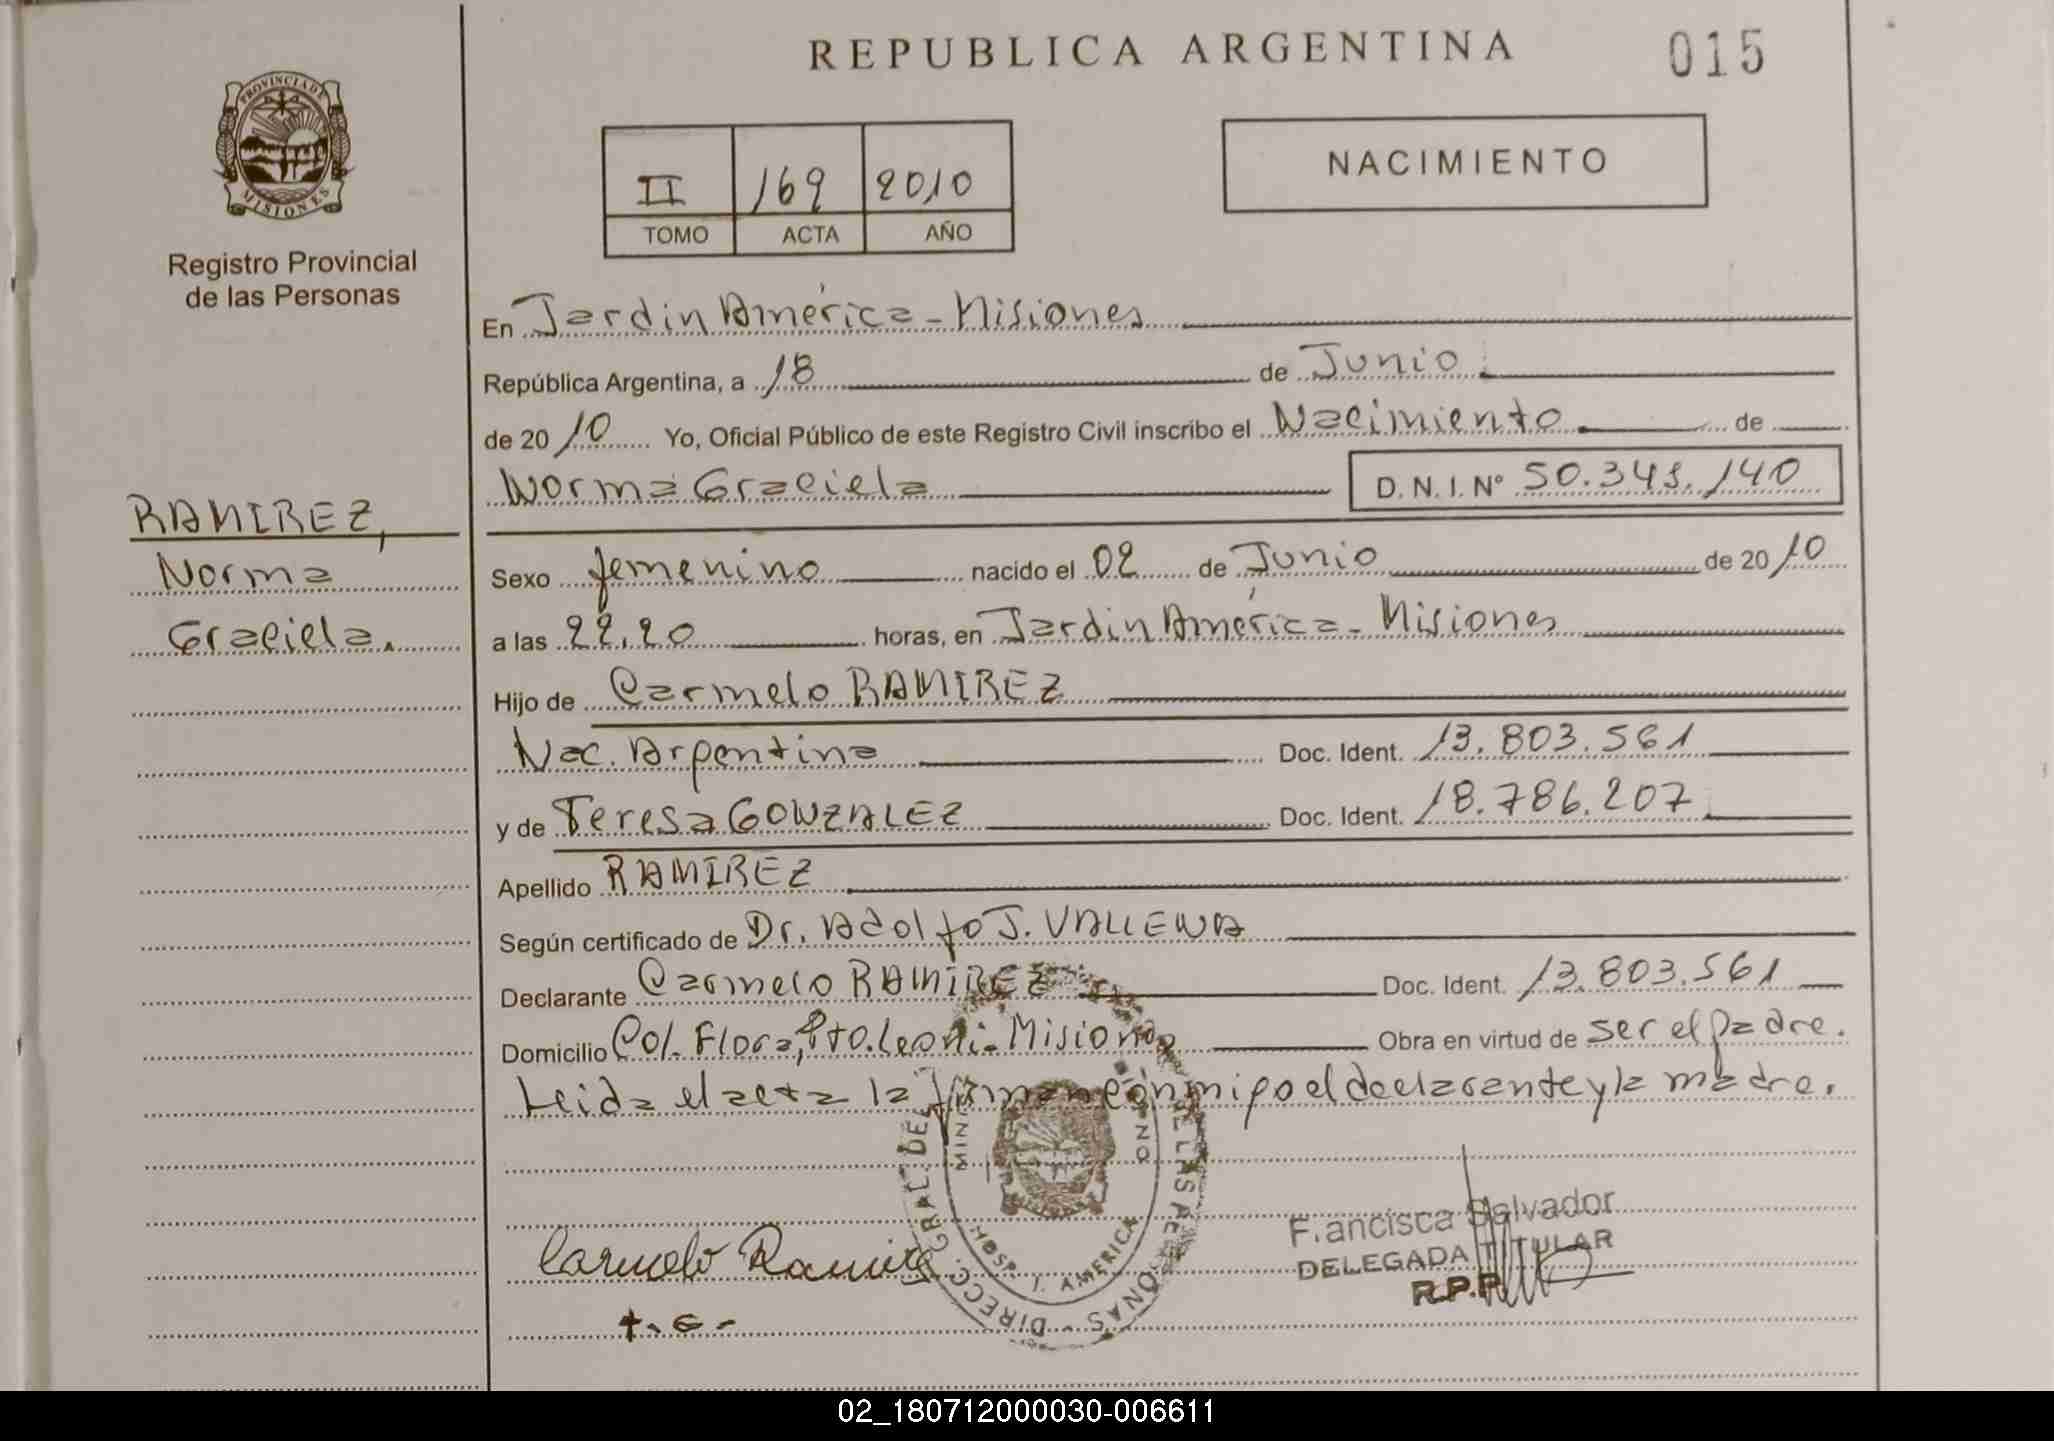 REPUBLICA ARGENTINA
015
PROVINCIA DE
MISIONES
Registro Provincial
de las Personas
II 169 2010
TOMO ACTA AÑO
NACIMIENTO
En Jardin América - Misiones
República Argentina, a 18 de Junio
de 2010 Yo, Oficial Público de este Registro Civil inscribo el Nacimiento de
Norma Graciela D. N. I. N° 50.343.140
RAMIREZ,
Norma
Graciela.
Sexo femenino nacido el 02 de Junio de 2010
a las 22,20 horas, en Jardin América - Misiones
Hijo de Carmelo RAMIREZ
Nac. Argentina Doc. Ident. 13.803.561
y de Teresa GONZALEZ Doc. Ident. 18.786.207
Apellido RAMIREZ
Según certificado de Dr. Adolfo J. VALLENA
Declarante Carmelo RAMIREZ Doc. Ident. 13.803.561
Domicilio Col. Flora, Pto. Leoni - Misiones Obra en virtud de ser el padre.
Leida el acta la firman conmigo el declarante y la madre.
Carmelo Ramirez
HOSP. J. AMERICA
F.ancisca Salvador
DELEGADA TITULAR
R.P.P.
02_180712000030-006611